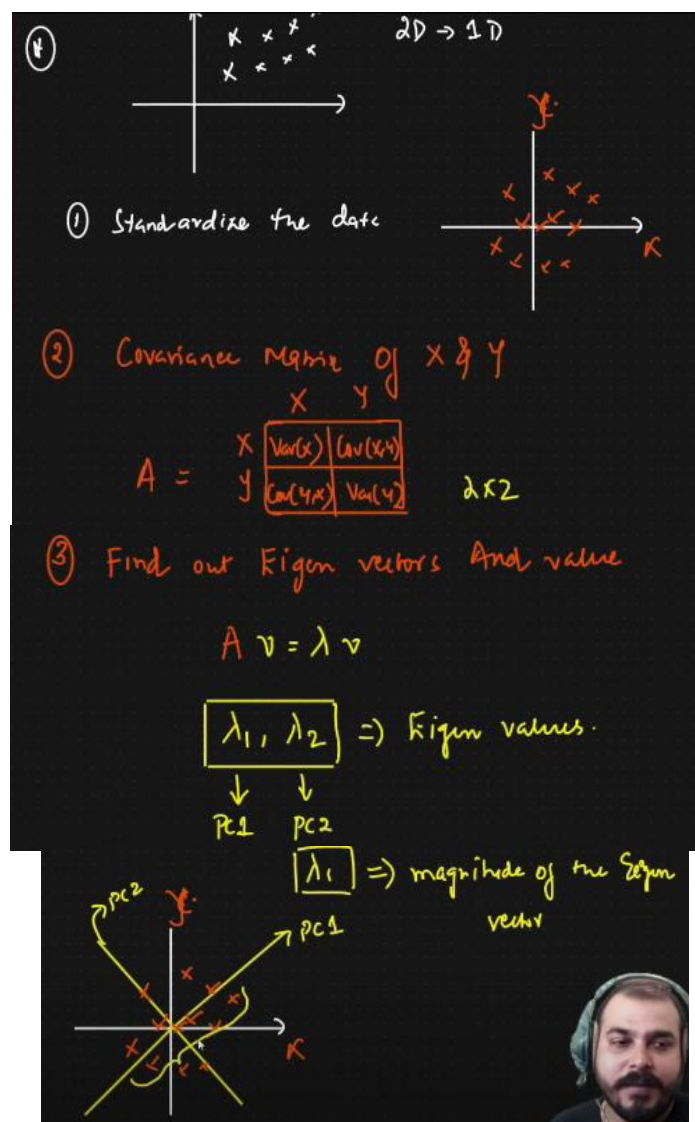 2D → 1D
Y
① Standardize the data
X
② Covariance Matrix of X & Y
X Y
X Var(x) Cov(x,y)
A =
Y Cov(y,x) Var(y)
2x2
③ Find out Eigen vectors And value
A v = λ v
λ1, λ2 => Eigen values.
PC1 PC2
λ1 => magnitude of the Eigen
vector
PC2
Y
PC1
X